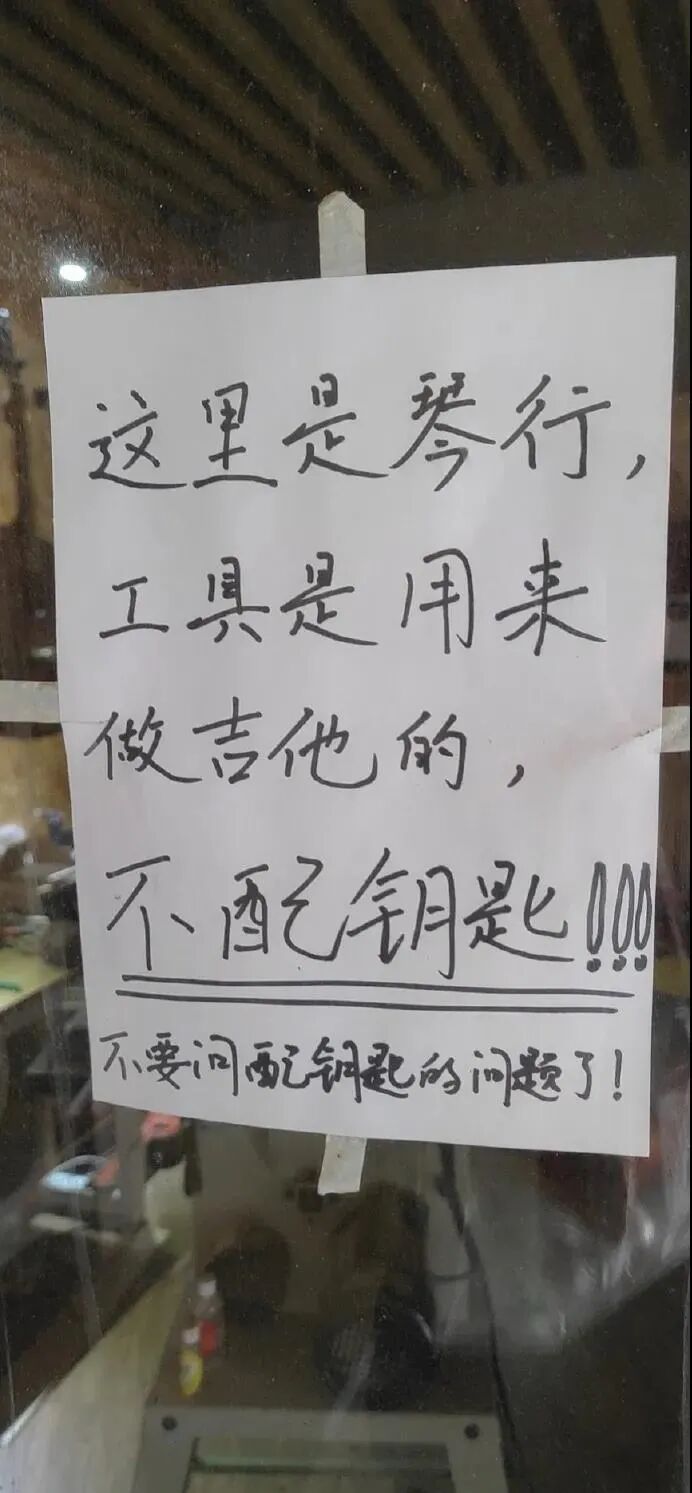 这里是琴行，
工具是用来
做吉他的，
不配钥匙!!!
不要问配钥匙的问题了!